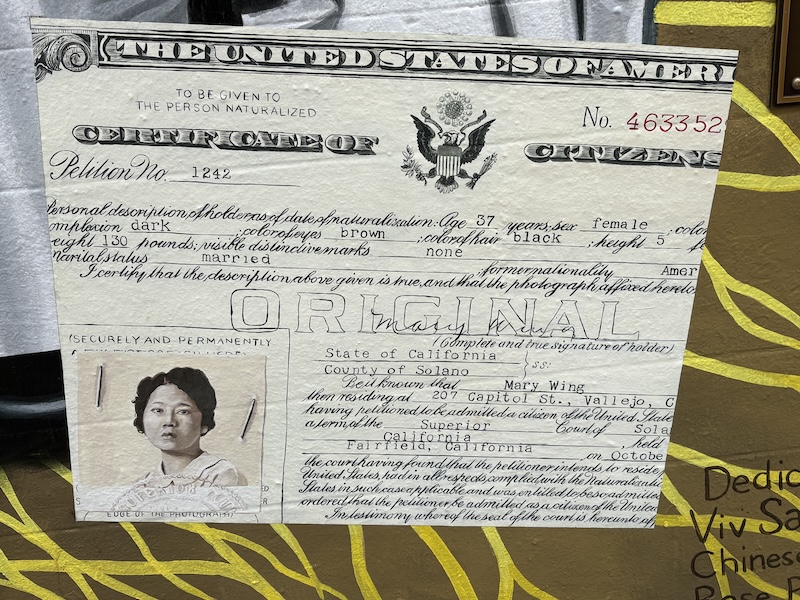 THE UNITED STATES OF AMERI
TO BE GIVEN TO
THE PERSON NATURALIZED
No. 463352
CERTIFICATE OF
CITIZENS
Petition No. 1242
Personal description of holder as of date of naturalization: Age 37 years; sex female ; color
omplexion dark ; color of eyes brown ; color of hair black ; height 5 fe
eight 130 pounds; visible distinctive marks none
Marital status married ; former nationality Amer
I certify that the description above given is true, and that the photograph affixed hereto
ORIGINAL
Mary Wing
(Complete and true signature of holder)
(SECURELY AND PERMANENTLY
State of California
County of Solano } ss:
Be it known that Mary Wing
then residing at 207 Capitol St., Vallejo, C
having petitioned to be admitted a citizen of the United State
a term of the Superior Court of Sola
California , held
Fairfield, California , on Octobe
the court having found that the petitioner intends to reside
United States, had in all respects complied with the Naturalizati
States in such case applicable and was entitled to be so admitted
ordered that the petitioner be admitted as a citizen of the United
In testimony whereof the seal of the court is hereunto af
EDGE OF THE PHOTOGRAPH)
Dedic
Viv Sa
Chinese
Rose P